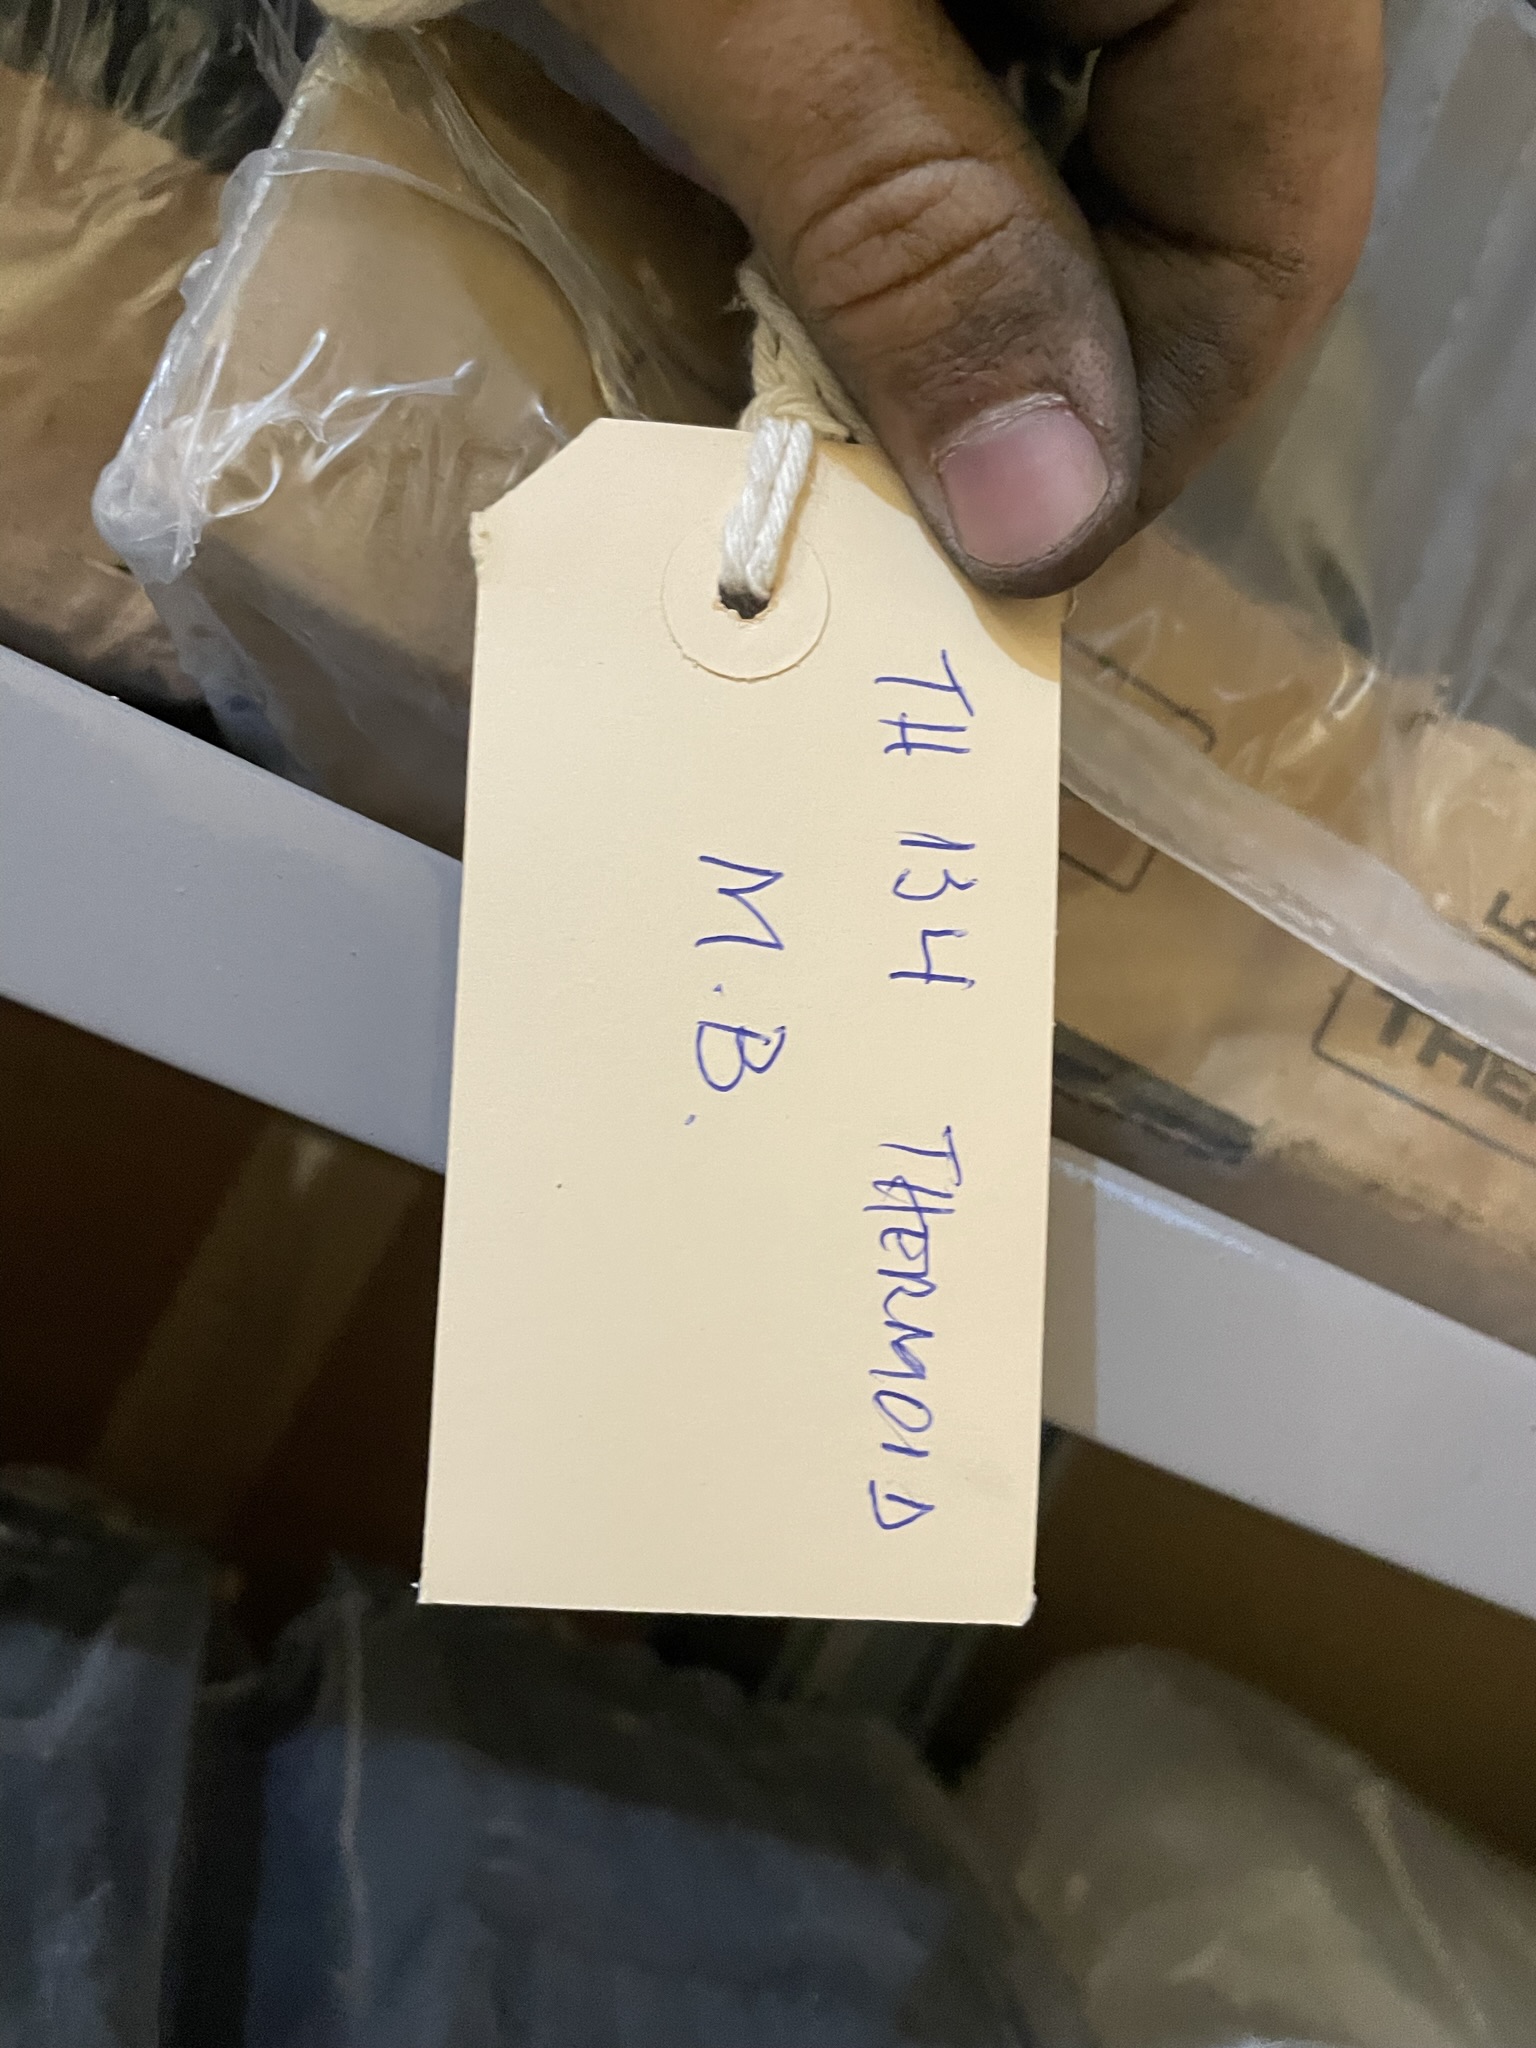 TH 134 THERMOID
M.B.